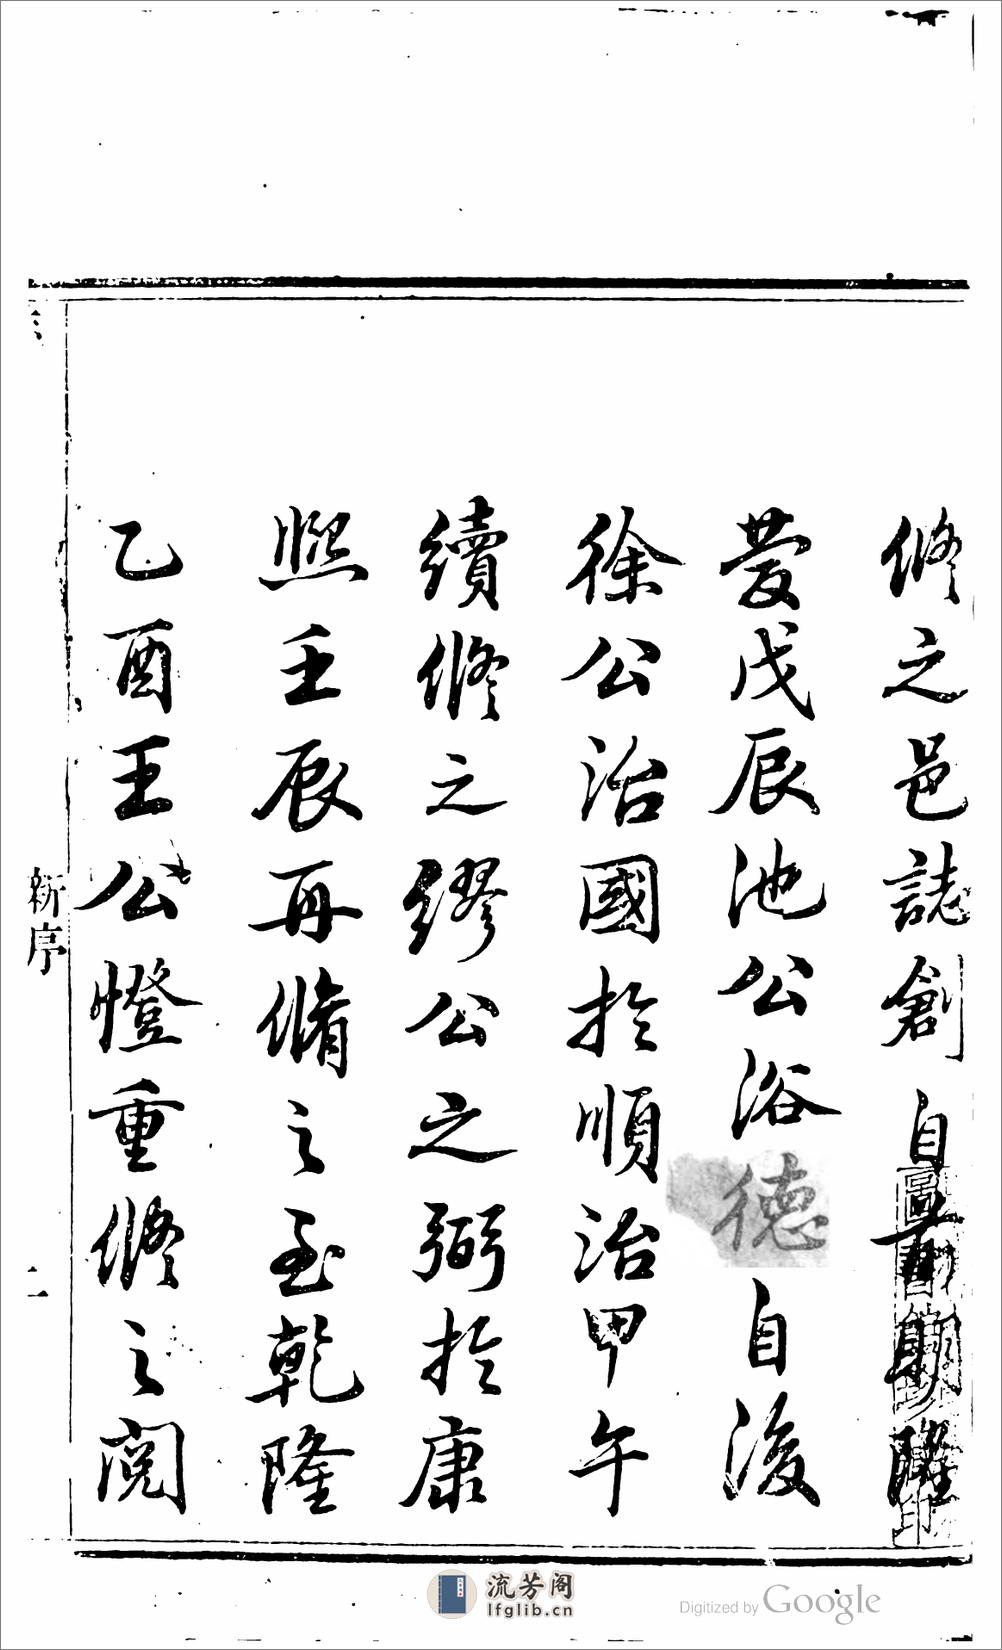 修之邑誌創自前明隆
慶戊辰池公浴德自後
徐公治國於順治甲午
續修之繆公之弼於康
熙壬辰再脩之至乾隆
乙酉王公燈重修之閱
新序
二
流芳阁
lfglib.cn
Digitized by Google